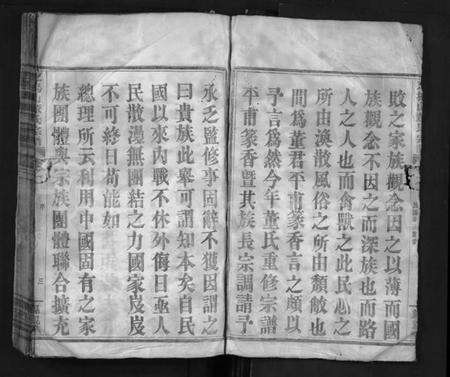 敗之家族觀念因之以薄而國
族觀念不因之而深族也而路
人之人也而禽獸之此民心之
所由渙散風俗之所由頹敝也
間爲董君平甫篆香言之頗以
予言爲然今年董氏重修宗譜
平甫篆香暨其族長宗調請予
承乏監修事固辭不獲因謂之
曰貴族此舉可謂知本矣自民
國以來內戰不休外侮日亟人
民散漫無團結之力國家岌岌
不可終日苟能如
總理所云利用中國固有之家
族團體與宗族團體聯合擴充